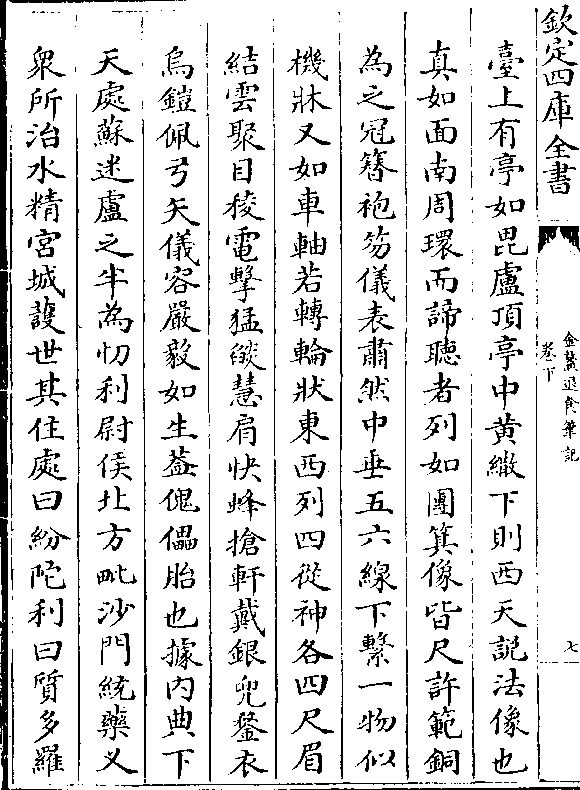 欽定四庫全書
金鰲退食筆記
卷下
七
臺上有亭如毘盧頂亭中黄繖下則西天説法像也
真如面南周環而諦聽者列如團箕像皆尺許範銅
為之冠簪袍笏儀表肅然中垂五六線下繫一物似
機牀又如車軸若轉輪狀東西列四從神各四尺眉
結雲聚目稜電擊猛燄慧肩快蜂搶軒戴銀兜鍪衣
烏鎧佩弓矢儀容嚴毅如生葢傀儡胎也據内典下
天處蘇迷盧之半為忉利尉侯北方毗沙門統藥叉
衆所治水精宮城護世其住處曰紛陀利曰質多羅